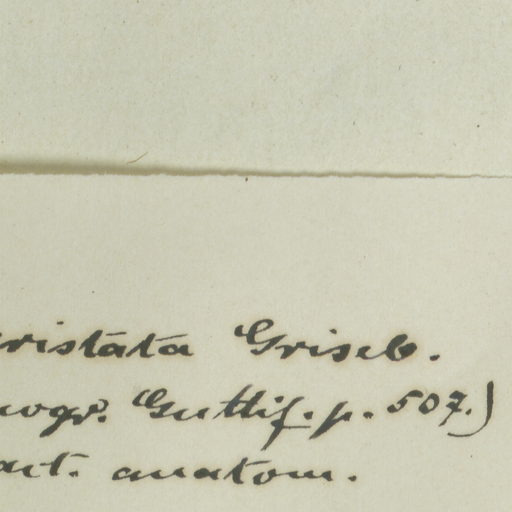 ristata Griseb.
ogr. Guttif. p. 507.)
act. anatom.